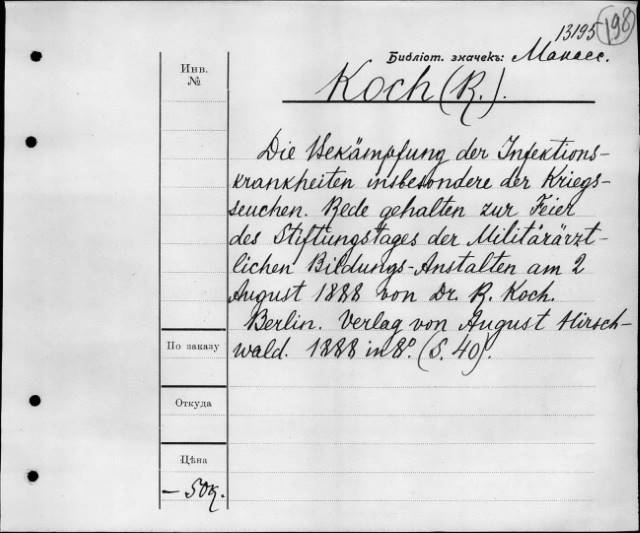 13195
198
Библіот. значекъ: Манасс.
Инв.
№
Koch (R.).
Die Bekämpfung der Infektions-
krankheiten insbesondere der Kriegs-
seuchen. Rede gehalten zur Feier
des Stiftungstages der Militärärzt-
lichen Bildungs-Anstalten am 2
August 1888 von Dr. R. Koch.
Berlin. Verlag von August Hirsch-
wald. 1888 in 8°. (S. 40).
По заказу
Откуда
Цѣна
— 50к.